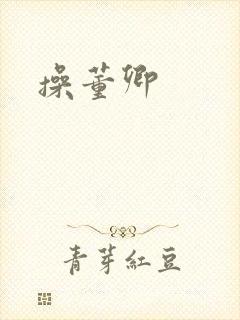 操董卿
青芽紅豆